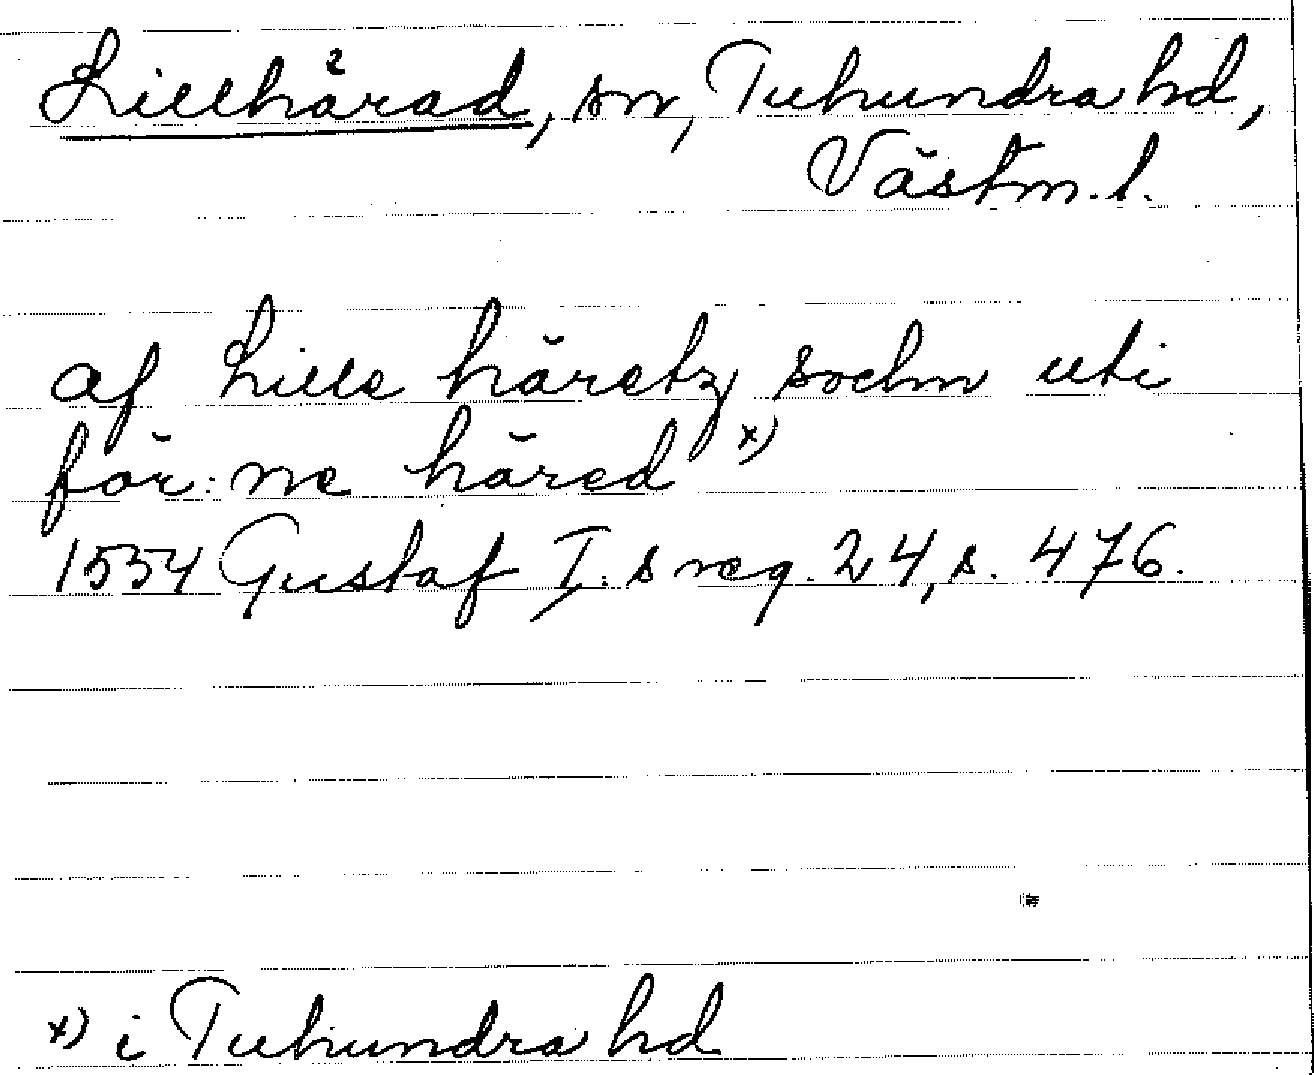 Lillhärad, sn, Tuhundra hd,
Västm. l.
af Lille häretz sochn uti
för:ne häred x)
1554 Gustaf I.s reg. 24, s. 476.
x) i Tuhundra hd